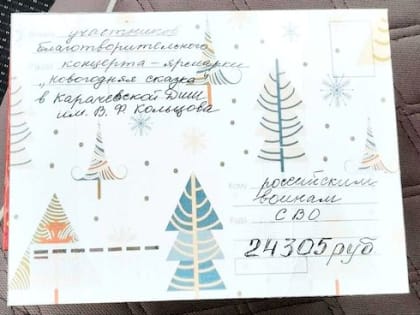 участников
благотворительного
концерта-ярмарки
„Новогодняя сказка"
в Карачевской ДШИ
им. В. Ф. Кольцова
Кому российским
воинам
Куда СВО
24305 руб